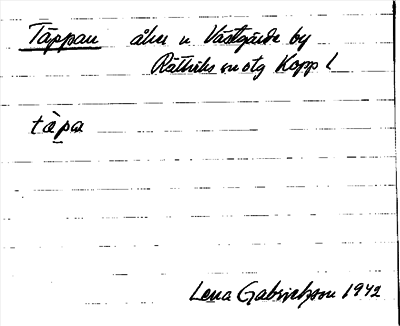 Täppan åker n Västgårde by
Rättviks sn otg Kopp l
täpa
Lena Gabrielsson 1942